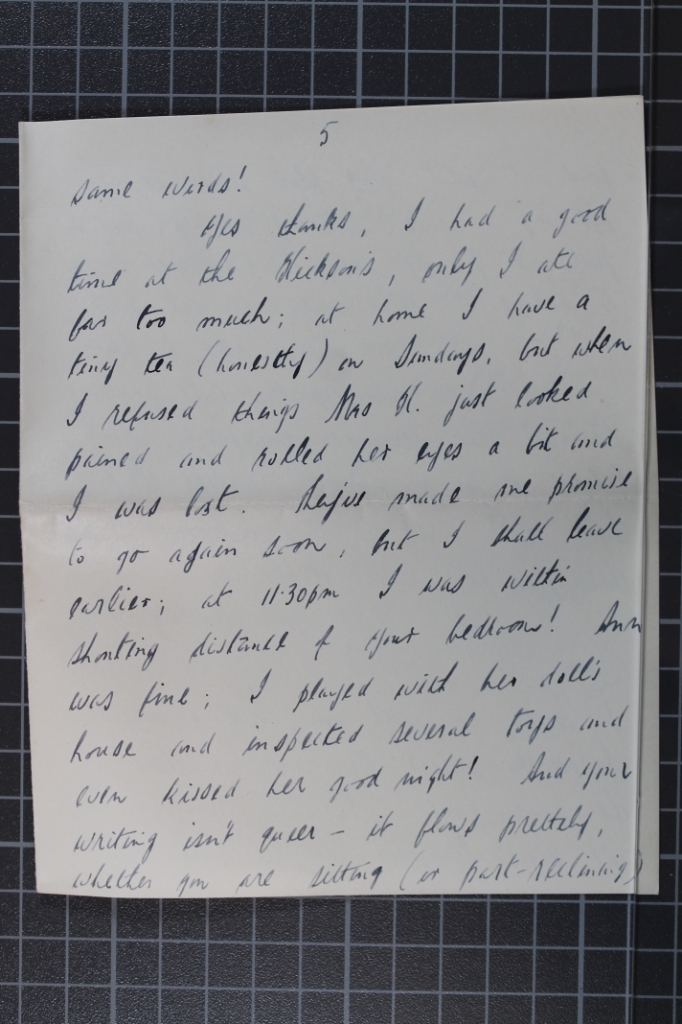 5
same words!
Yes thanks, I had a good
time at the Hickson's, only I ate
far too much; at home I have a
tiny tea (honestly) on Sundays, but when
I refused things Mrs H. just looked
pained and rolled her eyes a bit and
I was lost. made me promise
to go again soon, but I shall leave
earlier; at 11.30pm I was within
shouting distance of your bedroom! Ann
was fine; I played with her doll's
house and inspected several toys and
even kissed her good night! And your
writing isn't queer – it flows prettily,
whether you are sitting (or part-reclining)